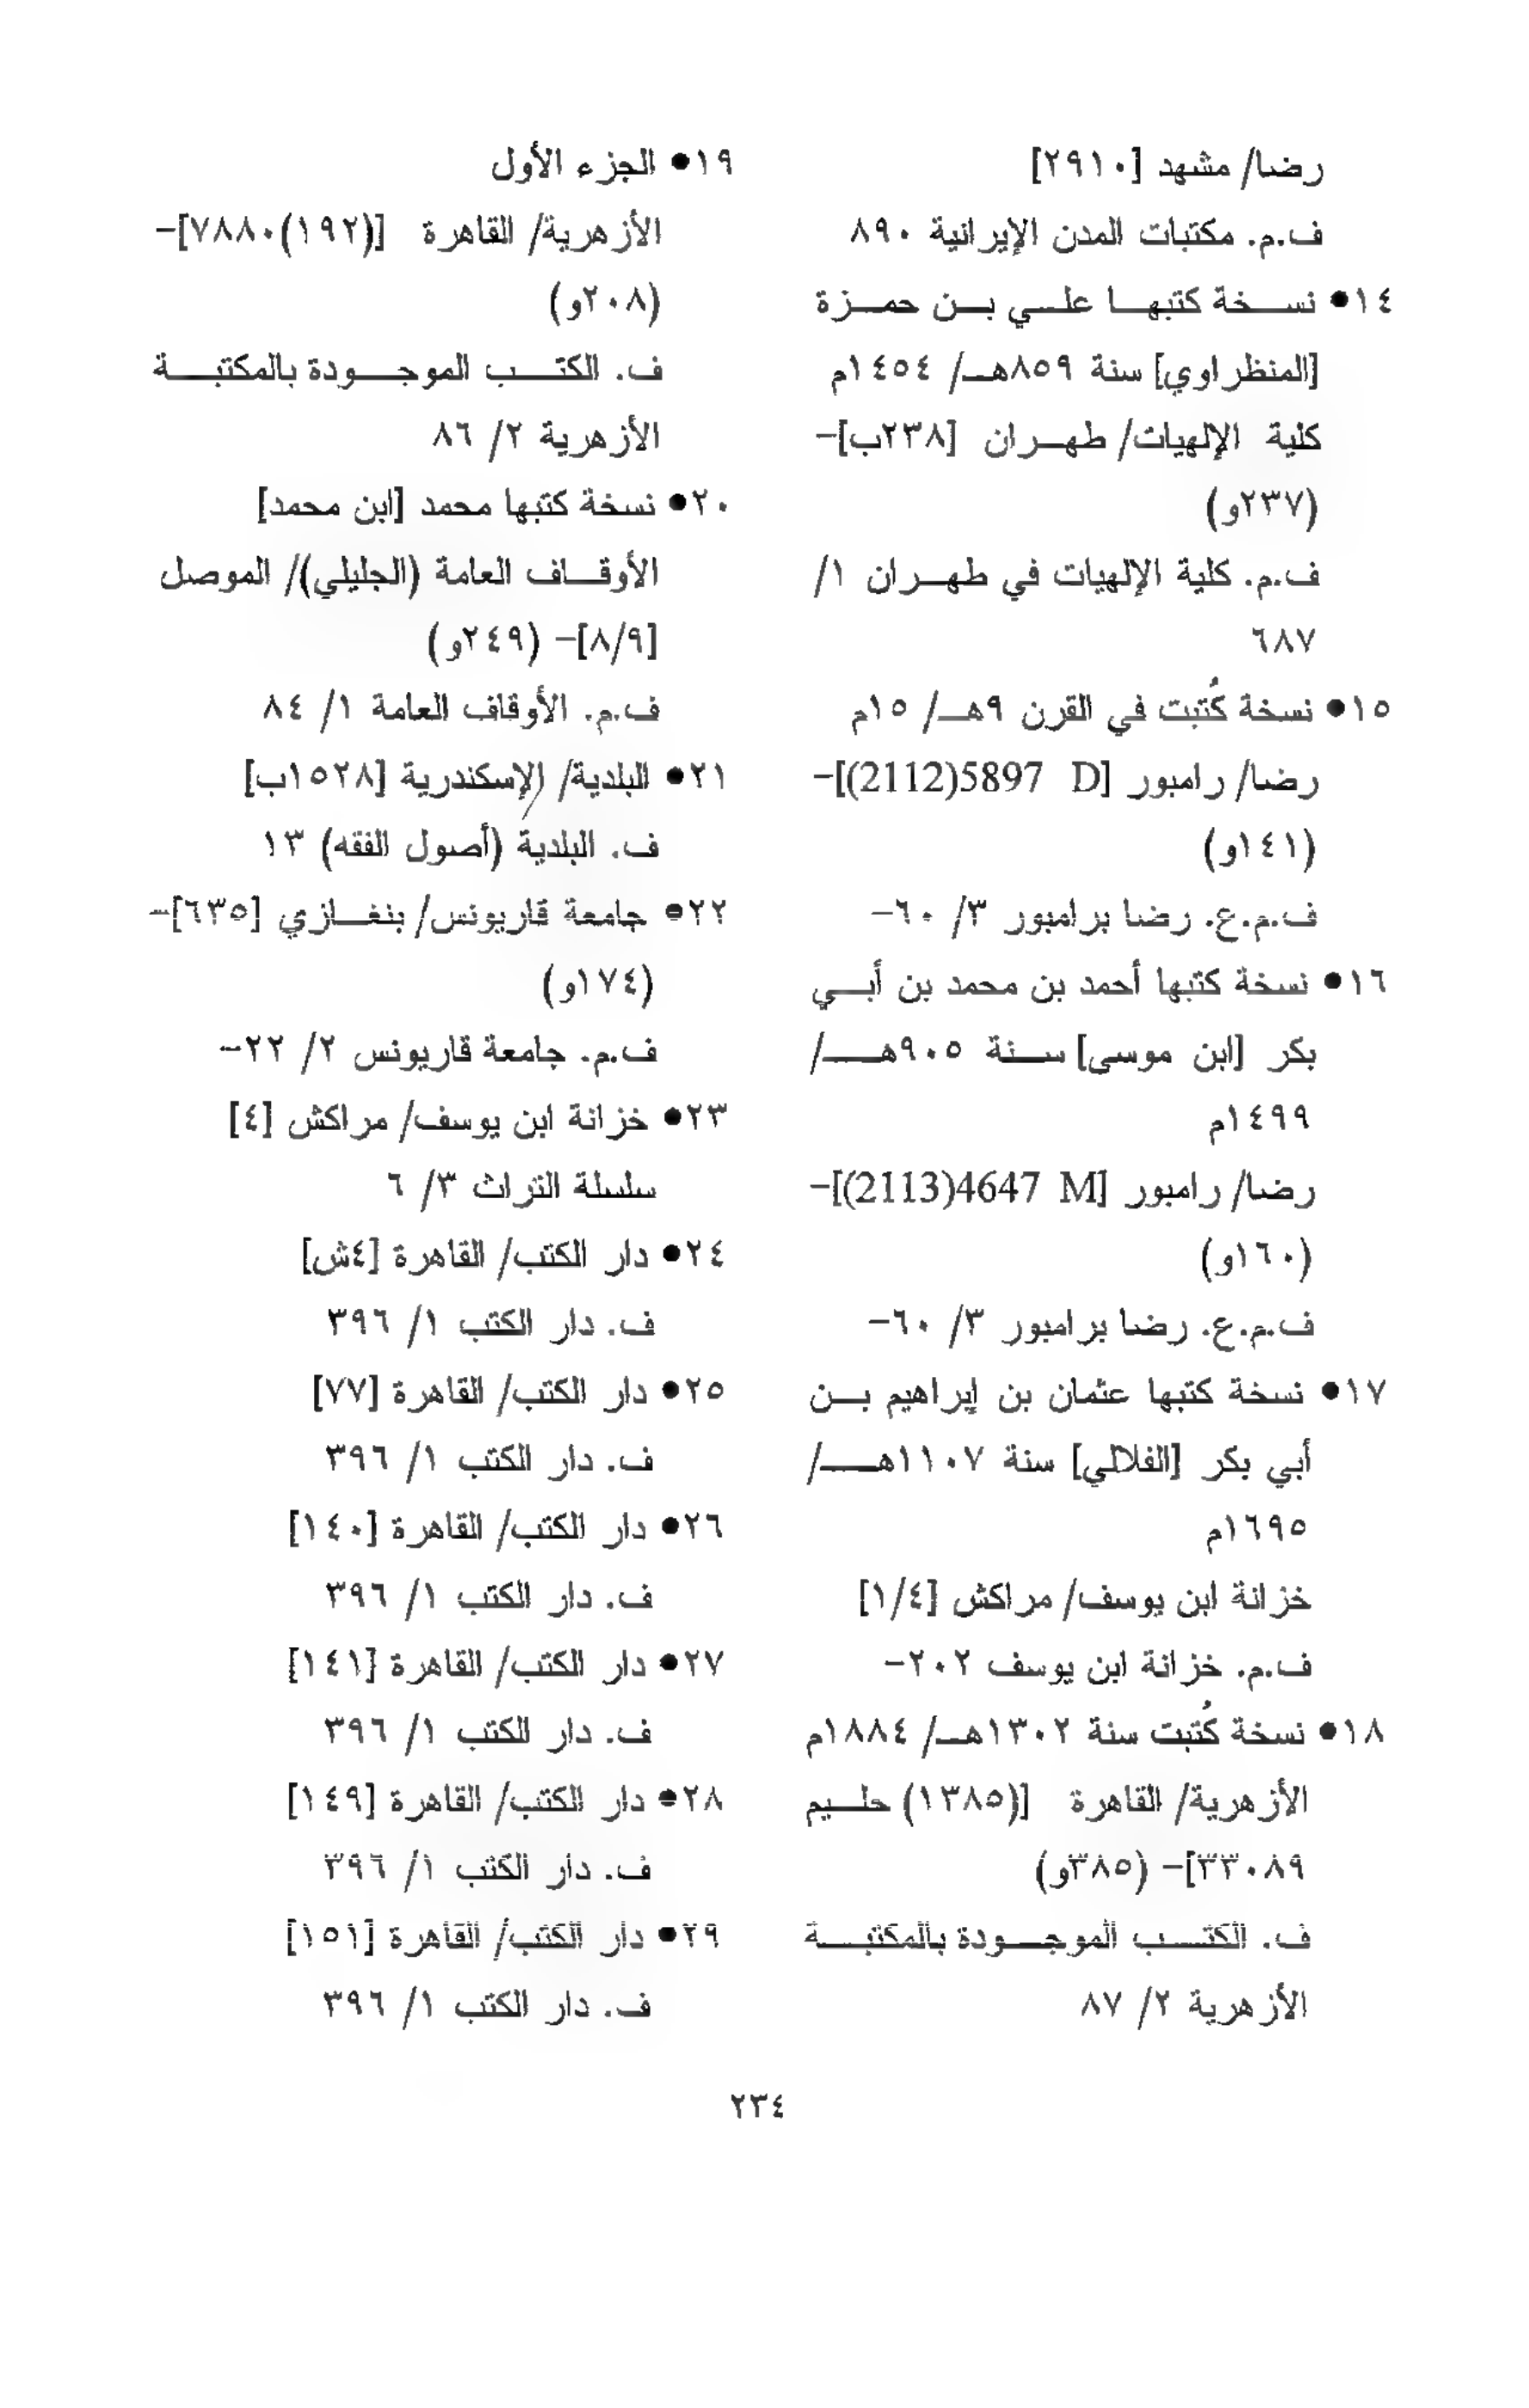 رضا/ مشهد [٢٩١٠]
ف.م. مكتبات المدن الإيرانية ٨٩٠
١٤● نسخة كتبها علي بن حمزة
[المنظراوي] سنة ٨٥٩هـ/ ١٤٥٤م
كلية الإلهيات/ طهران [٢٣٨ب]-
(٢٣٧و)
ف.م. كلية الإلهيات في طهران ١/
٦٨٧
١٥● نسخة كُتبت في القرن ٩هـ/ ١٥م
رضا/ رامبور [5897 D(2112)]-
(١٤١و)
ف.م.ع. رضا برامبور ٣/ ٦٠-
١٦● نسخة كتبها أحمد بن محمد بن أبي
بكر [ابن موسى] سنة ٩٠٥هـ/
١٤٩٩م
رضا/ رامبور [4647 M(2113)]-
(١٦٠و)
ف.م.ع. رضا برامبور ٣/ ٦٠-
١٧● نسخة كتبها عثمان بن إبراهيم بن
أبي بكر [الفلالي] سنة ١١٠٧هـ/
١٦٩٥م
خزانة ابن يوسف/ مراكش [١/٤]
ف.م. خزانة ابن يوسف ٢٠٢-
١٨● نسخة كُتبت سنة ١٣٠٢هـ/ ١٨٨٤م
الأزهرية/ القاهرة [(١٣٨٥) حليم
٣٣٠٨٩]- (٣٨٥و)
ف. الكتب الموجودة بالمكتبة
الأزهرية ٢/ ٨٧
١٩● الجزء الأول
الأزهرية/ القاهرة [(١٩٢)٧٨٨٠]-
(٢٠٨و)
ف. الكتب الموجودة بالمكتبة
الأزهرية ٢/ ٨٦
٢٠● نسخة كتبها محمد [ابن محمد]
الأوقاف العامة (الجليلي)/ الموصل
[٨/٩]- (٢٤٩و)
ف.م. الأوقاف العامة ١/ ٨٤
٢١● البلدية/ الإسكندرية [١٥٢٨ب]
ف. البلدية (أصول الفقه) ١٣
٢٢● جامعة قاريونس/ بنغازي [٦٣٥]-
(١٧٤و)
ف.م. جامعة قاريونس ٢/ ٢٢-
٢٣● خزانة ابن يوسف/ مراكش [٤]
سلسلة التراث ٣/ ٦
٢٤● دار الكتب/ القاهرة [٤ش]
ف. دار الكتب ١/ ٣٩٦
٢٥● دار الكتب/ القاهرة [٧٧]
ف. دار الكتب ١/ ٣٩٦
٢٦● دار الكتب/ القاهرة [١٤٠]
ف. دار الكتب ١/ ٣٩٦
٢٧● دار الكتب/ القاهرة [١٤١]
ف. دار الكتب ١/ ٣٩٦
٢٨● دار الكتب/ القاهرة [١٤٩]
ف. دار الكتب ١/ ٣٩٦
٢٩● دار الكتب/ القاهرة [١٥١]
ف. دار الكتب ١/ ٣٩٦
٢٣٤